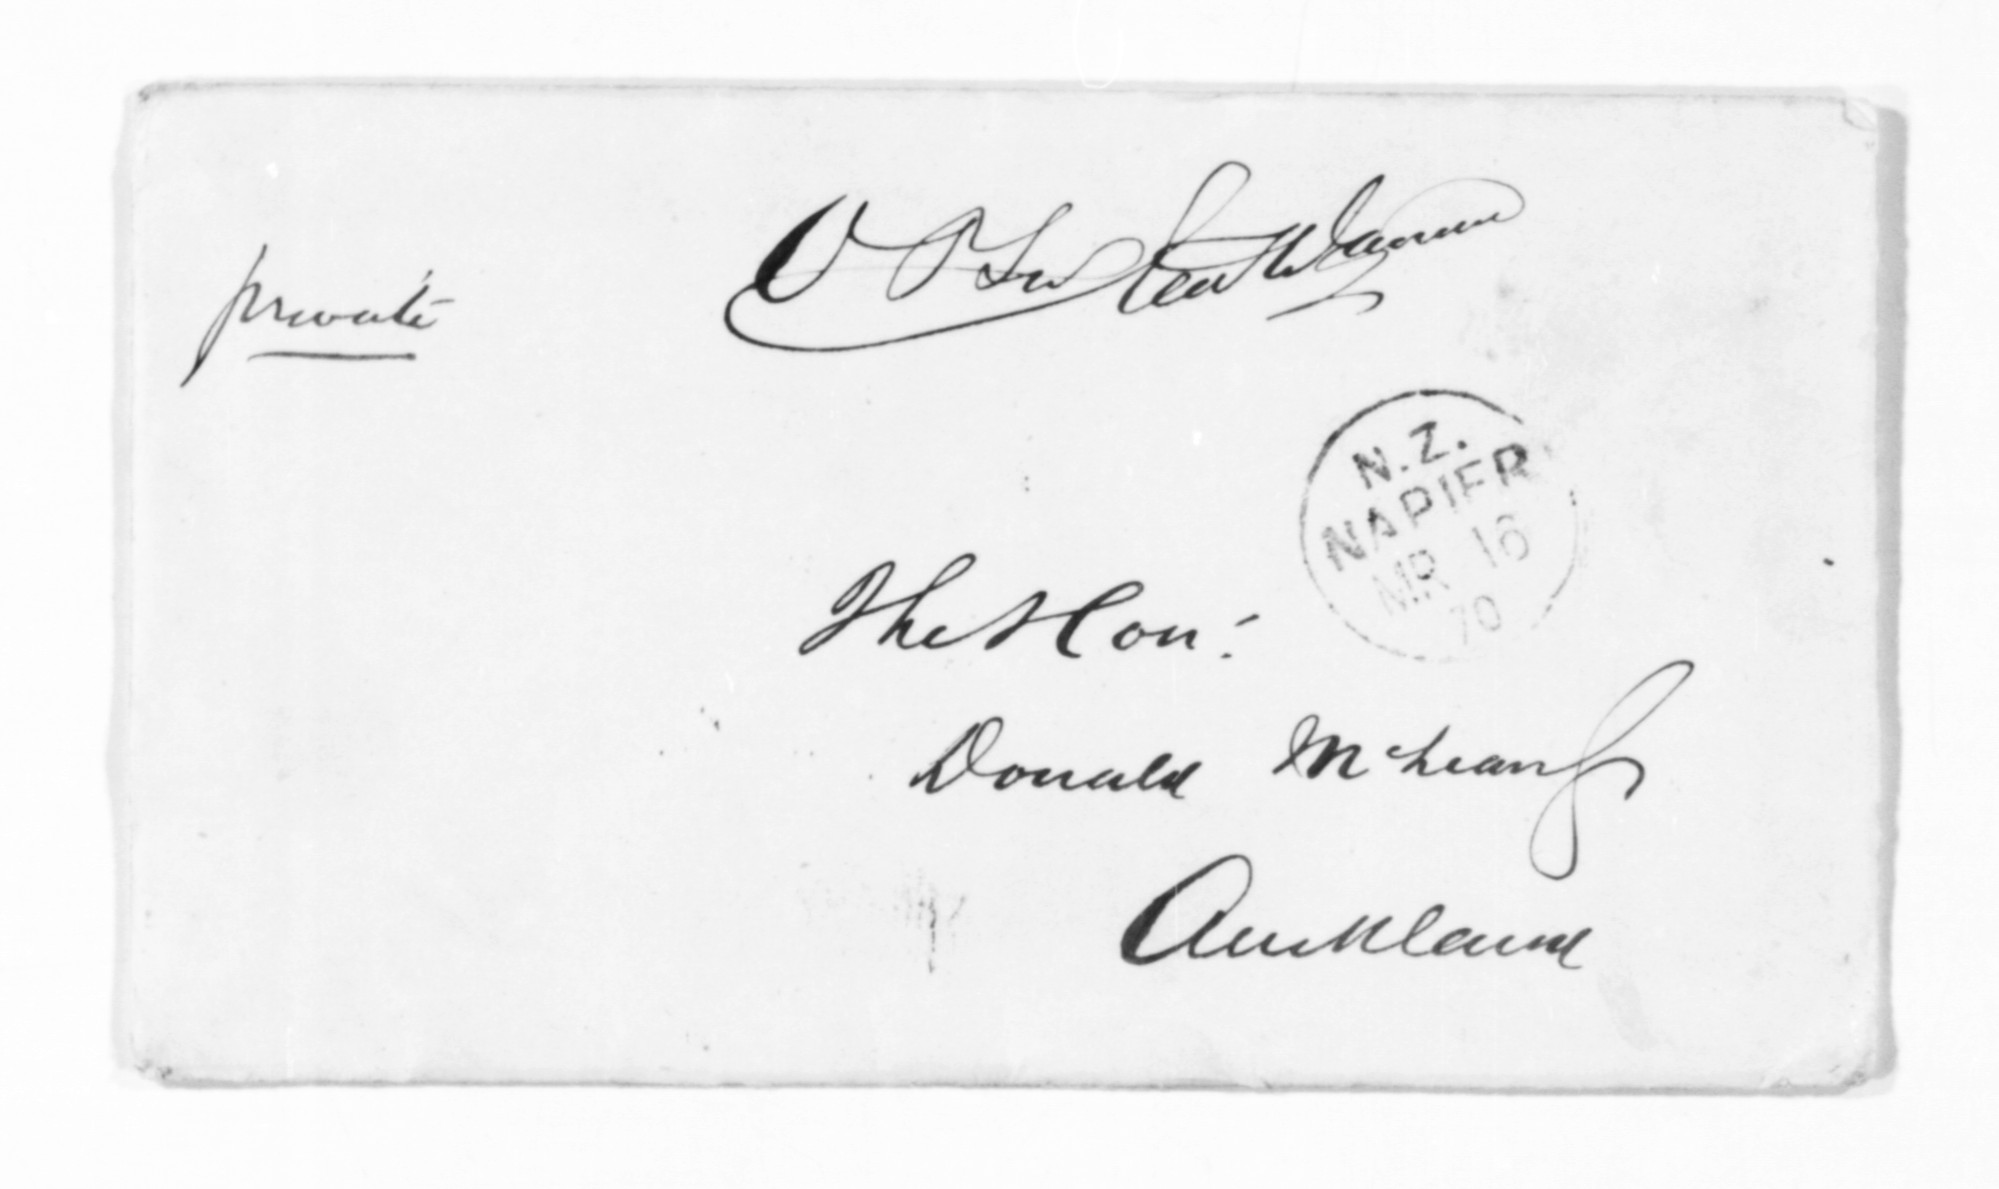 private
The Hon:
Donald McLean
Auckland
N.Z.
NAPIER
MR 16
70